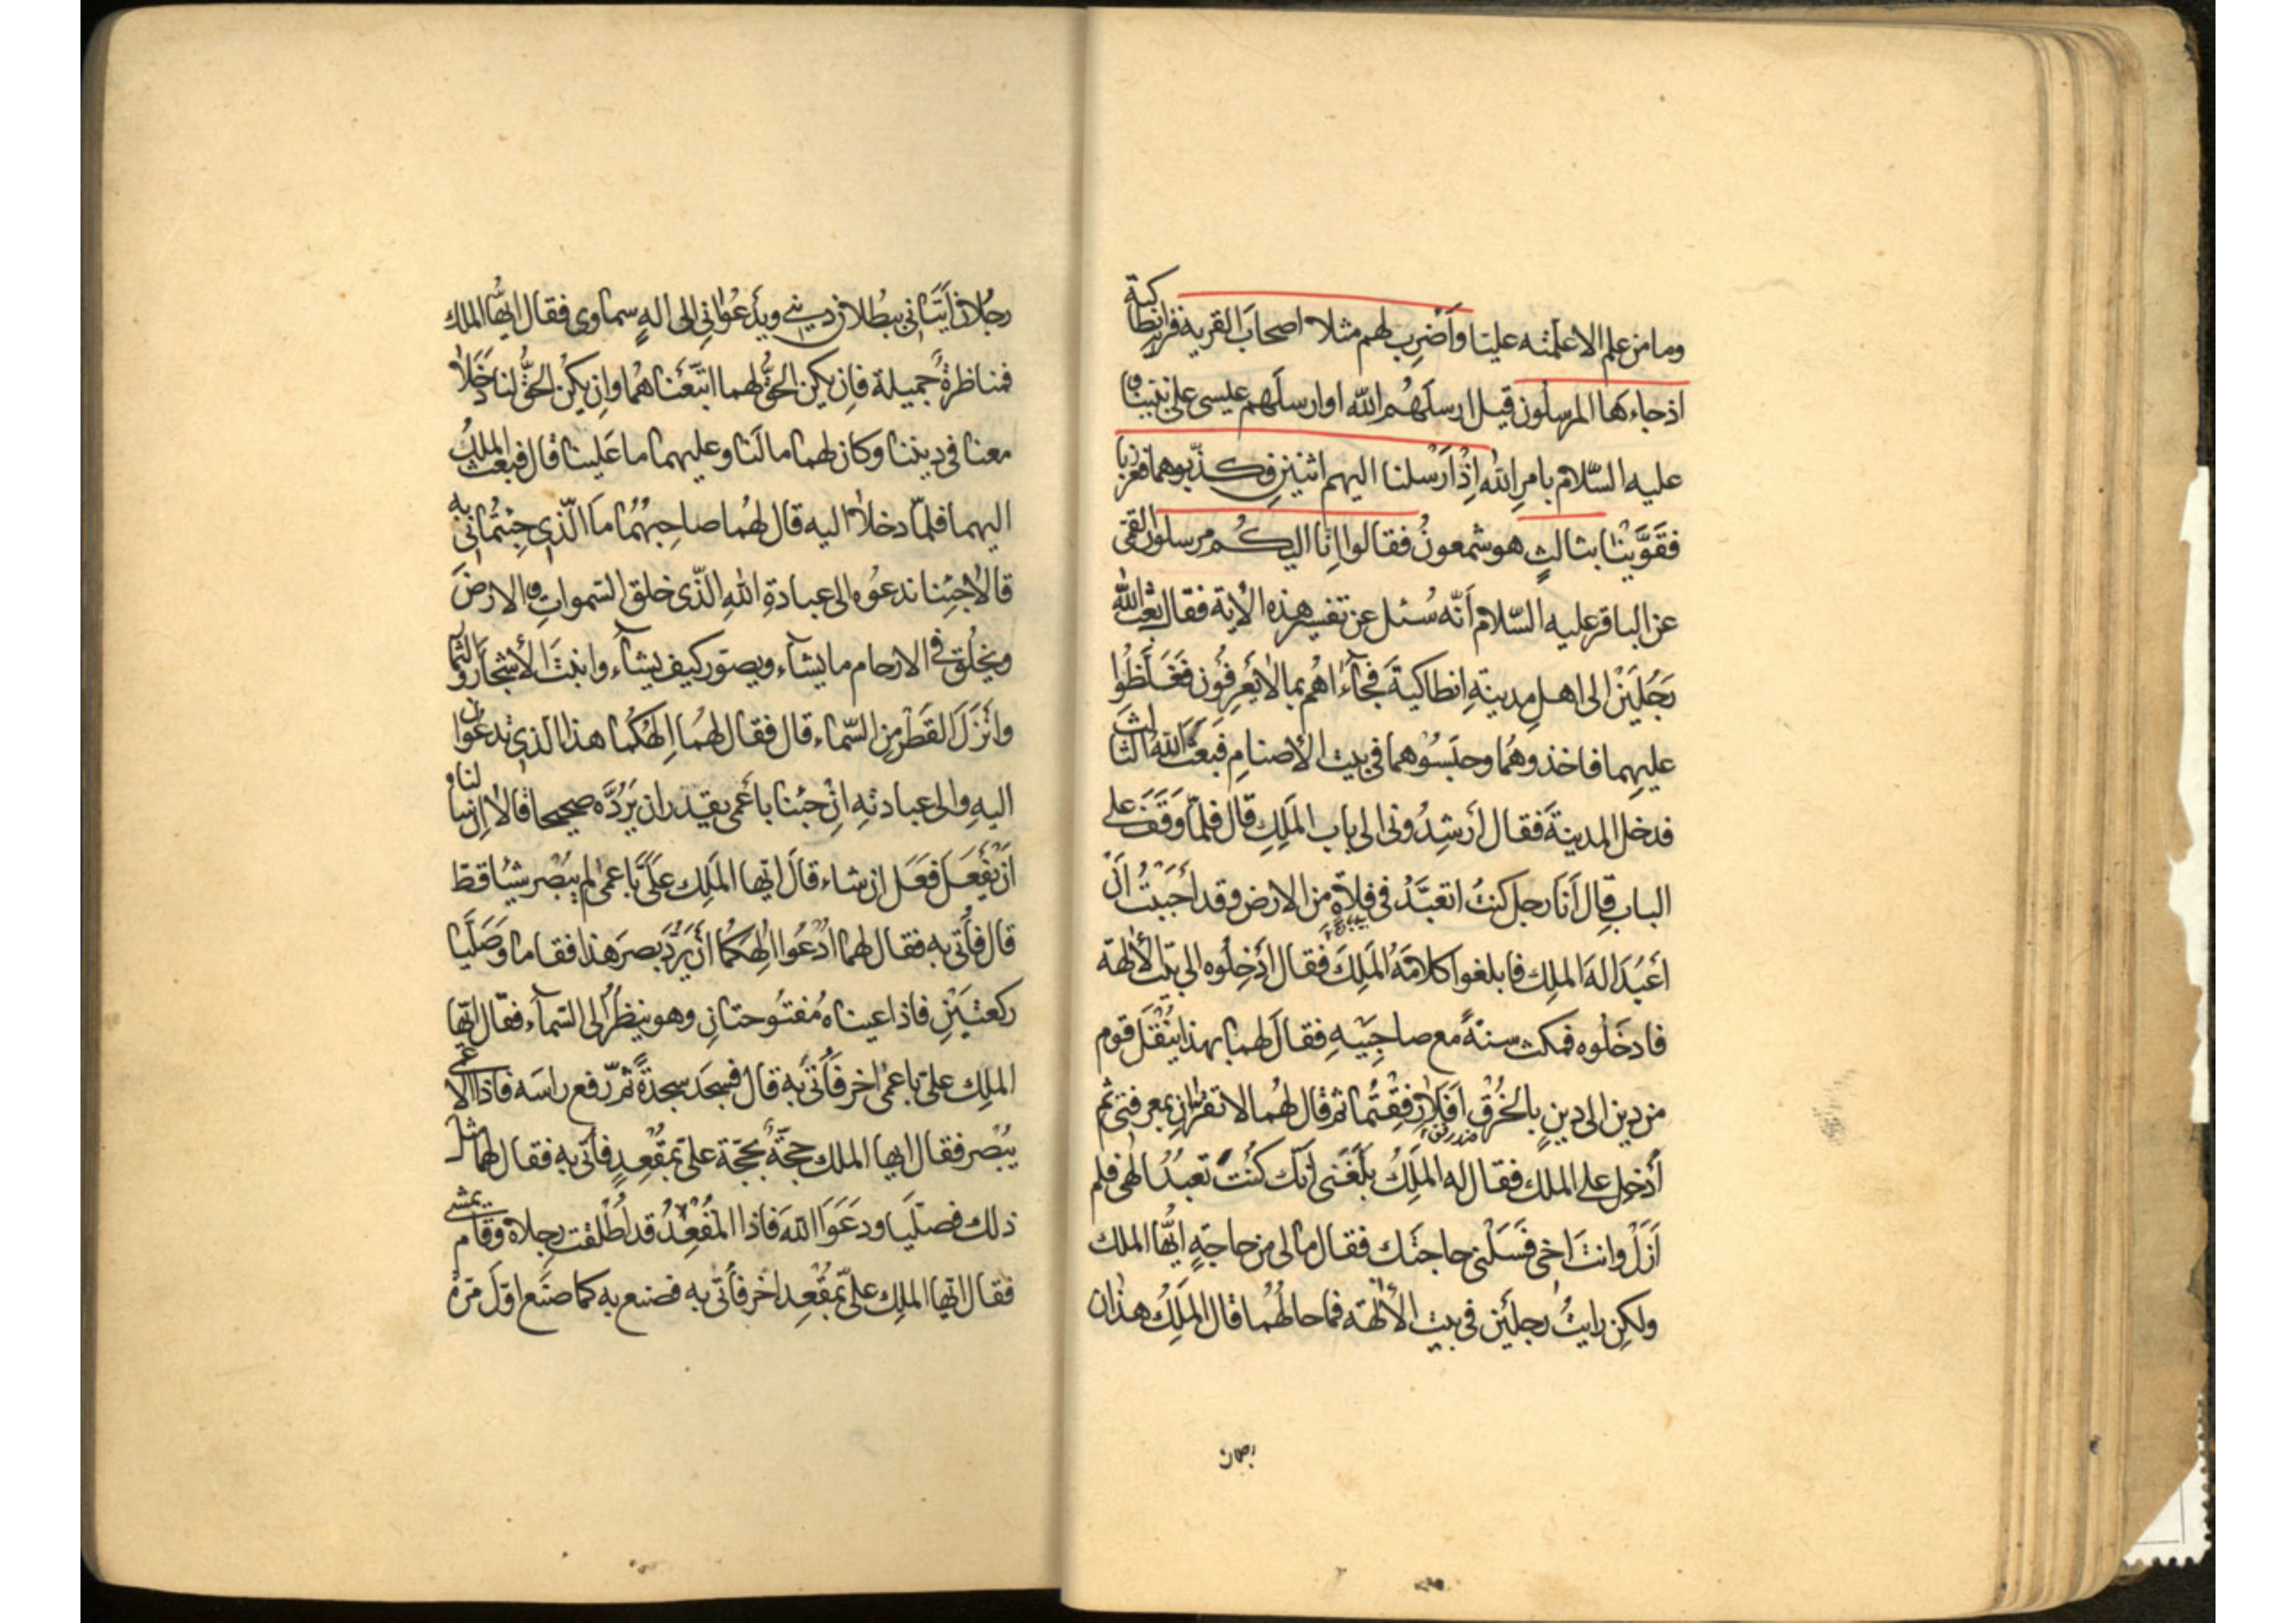 وما من علم الا علمته عليا واضرب لهم مثلا اصحاب القرية قرية انطاكية
اذ جاءها المرسلون قيل ارسلهم الله او ارسلهم عيسى على نبينا و
عليه السلام بامر الله اذ ارسلنا اليهم اثنين فكذبوهما فعززنا
فقوينا بثالث هو شمعون فقالوا انا اليكم مرسلون القمى
عن الباقر عليه السلام أنه سئل عن تفسير هذه الاية فقال بعث الله
رجلين الى اهل مدينة انطاكية فجاءاهم بما لا يعرفون فغلظوا
عليهما فاخذوهما وحبسوهما في بيت الأصنام فبعث الله الثالث
فدخل المدينة فقال أرشدوني الى باب الملك قال فلما وقف على
الباب قال أنا رجل كنت اتعبد في فلاة من الارض وقد أحببت أن
أعبد اله الملك فابلغوا كلامه الملك فقال أدخلوه الى بيت الألهة
فادخلوه فمكث سنة مع صاحبيه فقال لهما بهذا ينقل قوم
من دين الى دين بالخرق افلا رفقتما ثم قال لهما لا تقران بمعرفتي ثم
أدخل على الملك فقال له الملك بلغني أنك كنت تعبد الهى فلم
أزل وانت اخى فسلني حاجتك فقال مالى من حاجة ايها الملك
ولكن رايت رجلين في بيت الألهة فما حالهما قال الملك هذان
رجلان
رجلان أتياني ببطلان ديني ويدعواني الى اله سماوى فقال ايها الملك
فمناظرة جميلة فان يكن الحق لهما اتبعناهما وان يكن الحق لنا دخلا
معنا في ديننا وكان لهما ما لنا وعليهما ما علينا قال فبعث الملك
اليهما فلما دخلا اليه قال لهما صاحبهما ما الذي جئتماني به
قالا جئنا ندعوه الى عبادة الله الذي خلق السموات و الارض
ويخلق في الارحام ما يشاء ويصور كيف يشاء وانبت الأشجار والثمار
وانزل القطر من السماء قال فقال لهما الهكما هذا الذي تدعوان
اليه والى عبادته ان جئنا باعمى يقدر ان يرده صحيحا قالا ان سألناه
أن يفعل فعل ان شاء قال ايها الملك على باعمى لم يبصر شيئا قط
قال فأتى به فقال لهما ادعوا الهكما أن يرد بصر هذا فقاما وصليا
ركعتين فاذا عيناه مفتوحتان وهو ينظر الى السماء فقال ايها
الملك على باعمى اخر فأتى به قال فسجد سجدة ثم رفع راسه فاذا الاعمى
يبصر فقال ايها الملك حجة بحجة على بمقعد فأتى به فقال لهما مثل
ذلك فصليا ودعوا الله فاذا المقعد قد اطلقت رجلاه وقام يمشى
فقال ايها الملك على بمقعد اخر فأتى به فصنع به كما صنع اول مرة